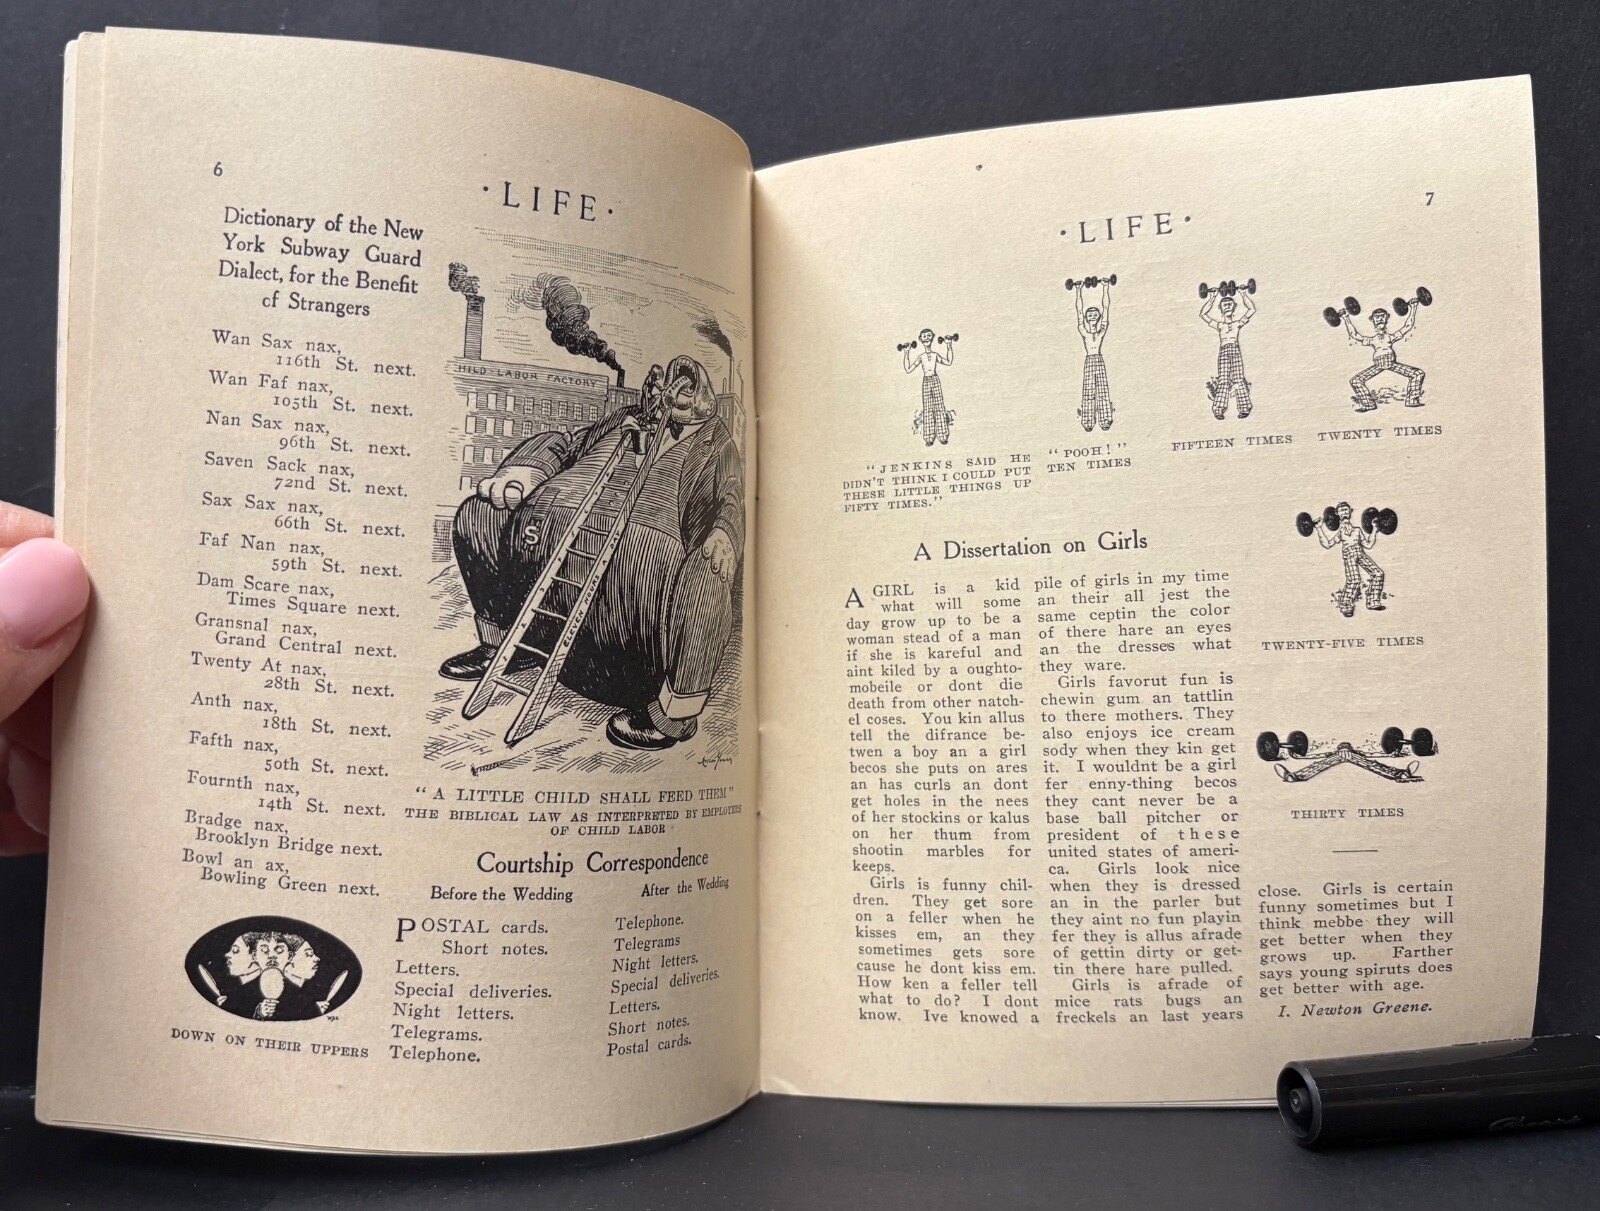 6
·LIFE·
Dictionary of the New
York Subway Guard
Dialect, for the Benefit
of Strangers
Wan Sax nax,
116th St. next.
Wan Faf nax,
105th St. next.
Nan Sax nax,
96th St. next.
Saven Sack nax,
72nd St. next.
Sax Sax nax,
66th St. next.
Faf Nan nax,
59th St. next.
Dam Scare nax,
Times Square next.
Gransnal nax,
Grand Central next.
Twenty At nax,
28th St. next.
Anth nax,
18th St. next.
Fafth nax,
50th St. next.
Fournth nax,
14th St. next.
Bradge nax,
Brooklyn Bridge next.
Bowl an ax,
Bowling Green next.
DOWN ON THEIR UPPERS
HILD-LABOR FACTORY
$
ELEVEN HOURS A DAY
"A LITTLE CHILD SHALL FEED THEM"
THE BIBLICAL LAW AS INTERPRETED BY EMPLOYERS
OF CHILD LABOR
Courtship Correspondence
Before the Wedding
POSTAL cards.
Short notes.
Letters.
Special deliveries.
Night letters.
Telegrams.
Telephone.
After the Wedding
Telephone.
Telegrams
Night letters.
Special deliveries.
Letters.
Short notes.
Postal cards.
7
·LIFE·
"JENKINS SAID HE
DIDN'T THINK I COULD PUT
THESE LITTLE THINGS UP
FIFTY TIMES."
"POOH!"
TEN TIMES
FIFTEEN TIMES
TWENTY TIMES
TWENTY-FIVE TIMES
THIRTY TIMES
A Dissertation on Girls
A GIRL is a kid
what will some
day grow up to be a
woman stead of a man
if she is kareful and
aint kiled by a oughto-
mobeile or dont die
death from other natch-
el coses. You kin allus
tell the difrance be-
twen a boy an a girl
becos she puts on ares
an has curls an dont
get holes in the nees
of her stockins or kalus
on her thum from
shootin marbles for
keeps.
Girls is funny chil-
dren. They get sore
on a feller when he
kisses em, an they
sometimes gets sore
cause he dont kiss em.
How ken a feller tell
what to do? I dont
know. Ive knowed a
pile of girls in my time
an their all jest the
same ceptin the color
of there hare an eyes
an the dresses what
they ware.
Girls favorut fun is
chewin gum an tattlin
to there mothers. They
also enjoys ice cream
sody when they kin get
it. I wouldnt be a girl
fer enny-thing becos
they cant never be a
base ball pitcher or
president of these
united states of ameri-
ca. Girls look nice
when they is dressed
an in the parler but
they aint no fun playin
fer they is allus afrade
of gettin dirty or get-
tin there hare pulled.
Girls is afrade of
mice rats bugs an
freckels an last years
close. Girls is certain
funny sometimes but I
think mebbe they will
get better when they
grows up. Farther
says young spiruts does
get better with age.
I. Newton Greene.